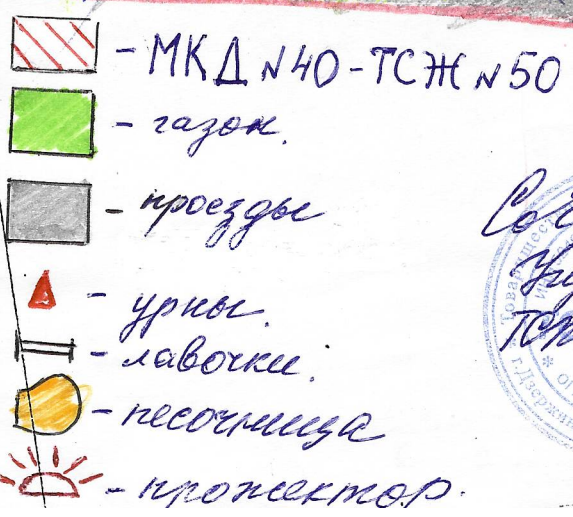 - МКД №40 - ТСЖ №50
- газон.
- проезды
- урны.
- лавочки.
- песочница
- прожектор.